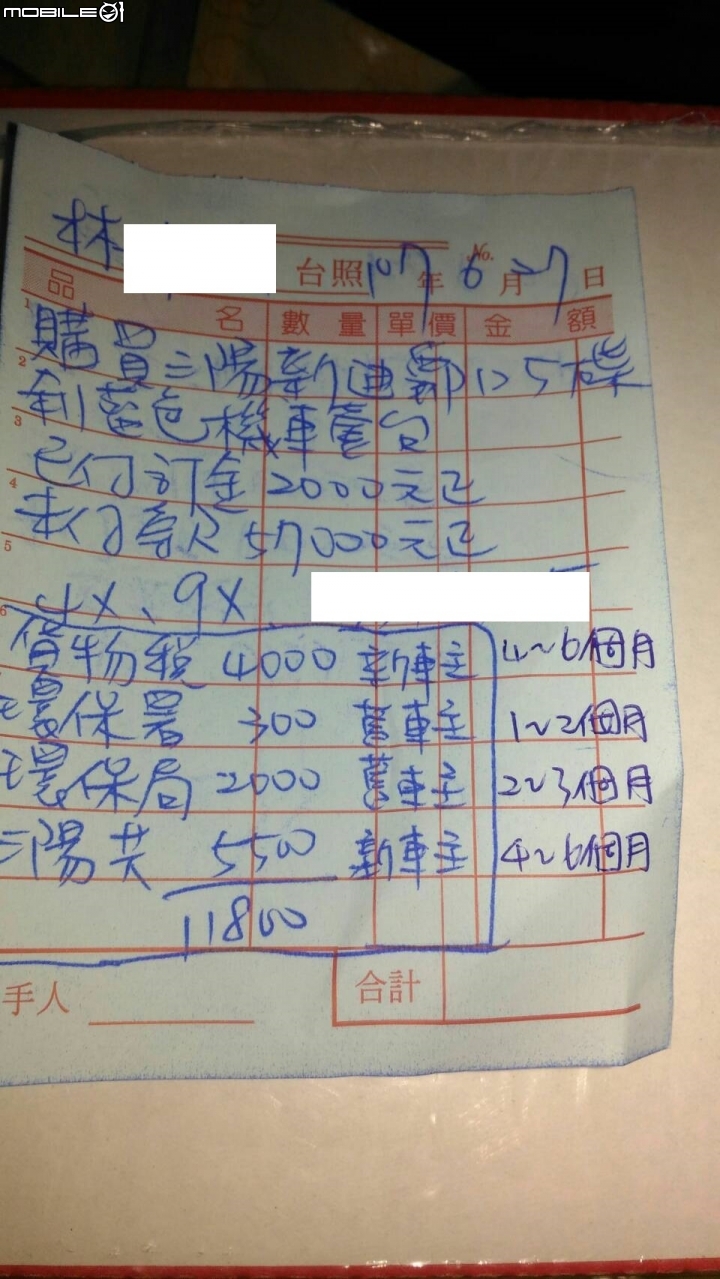 MOBILE01
林
台照 107年 6月27日
No.
品名 數量 單價 金額
1
購買三陽新迪爵125碟
2
剎藍色機車壹台
3
已付訂金2000元正
4
未付款57000元正
5
6
貨物稅 4000 新車主 4~6個月
環保署 300 舊車主 1~2個月
環保局 2000 舊車主 2~3個月
三陽共 5500 新車主 4~6個月
11800
手人 合計